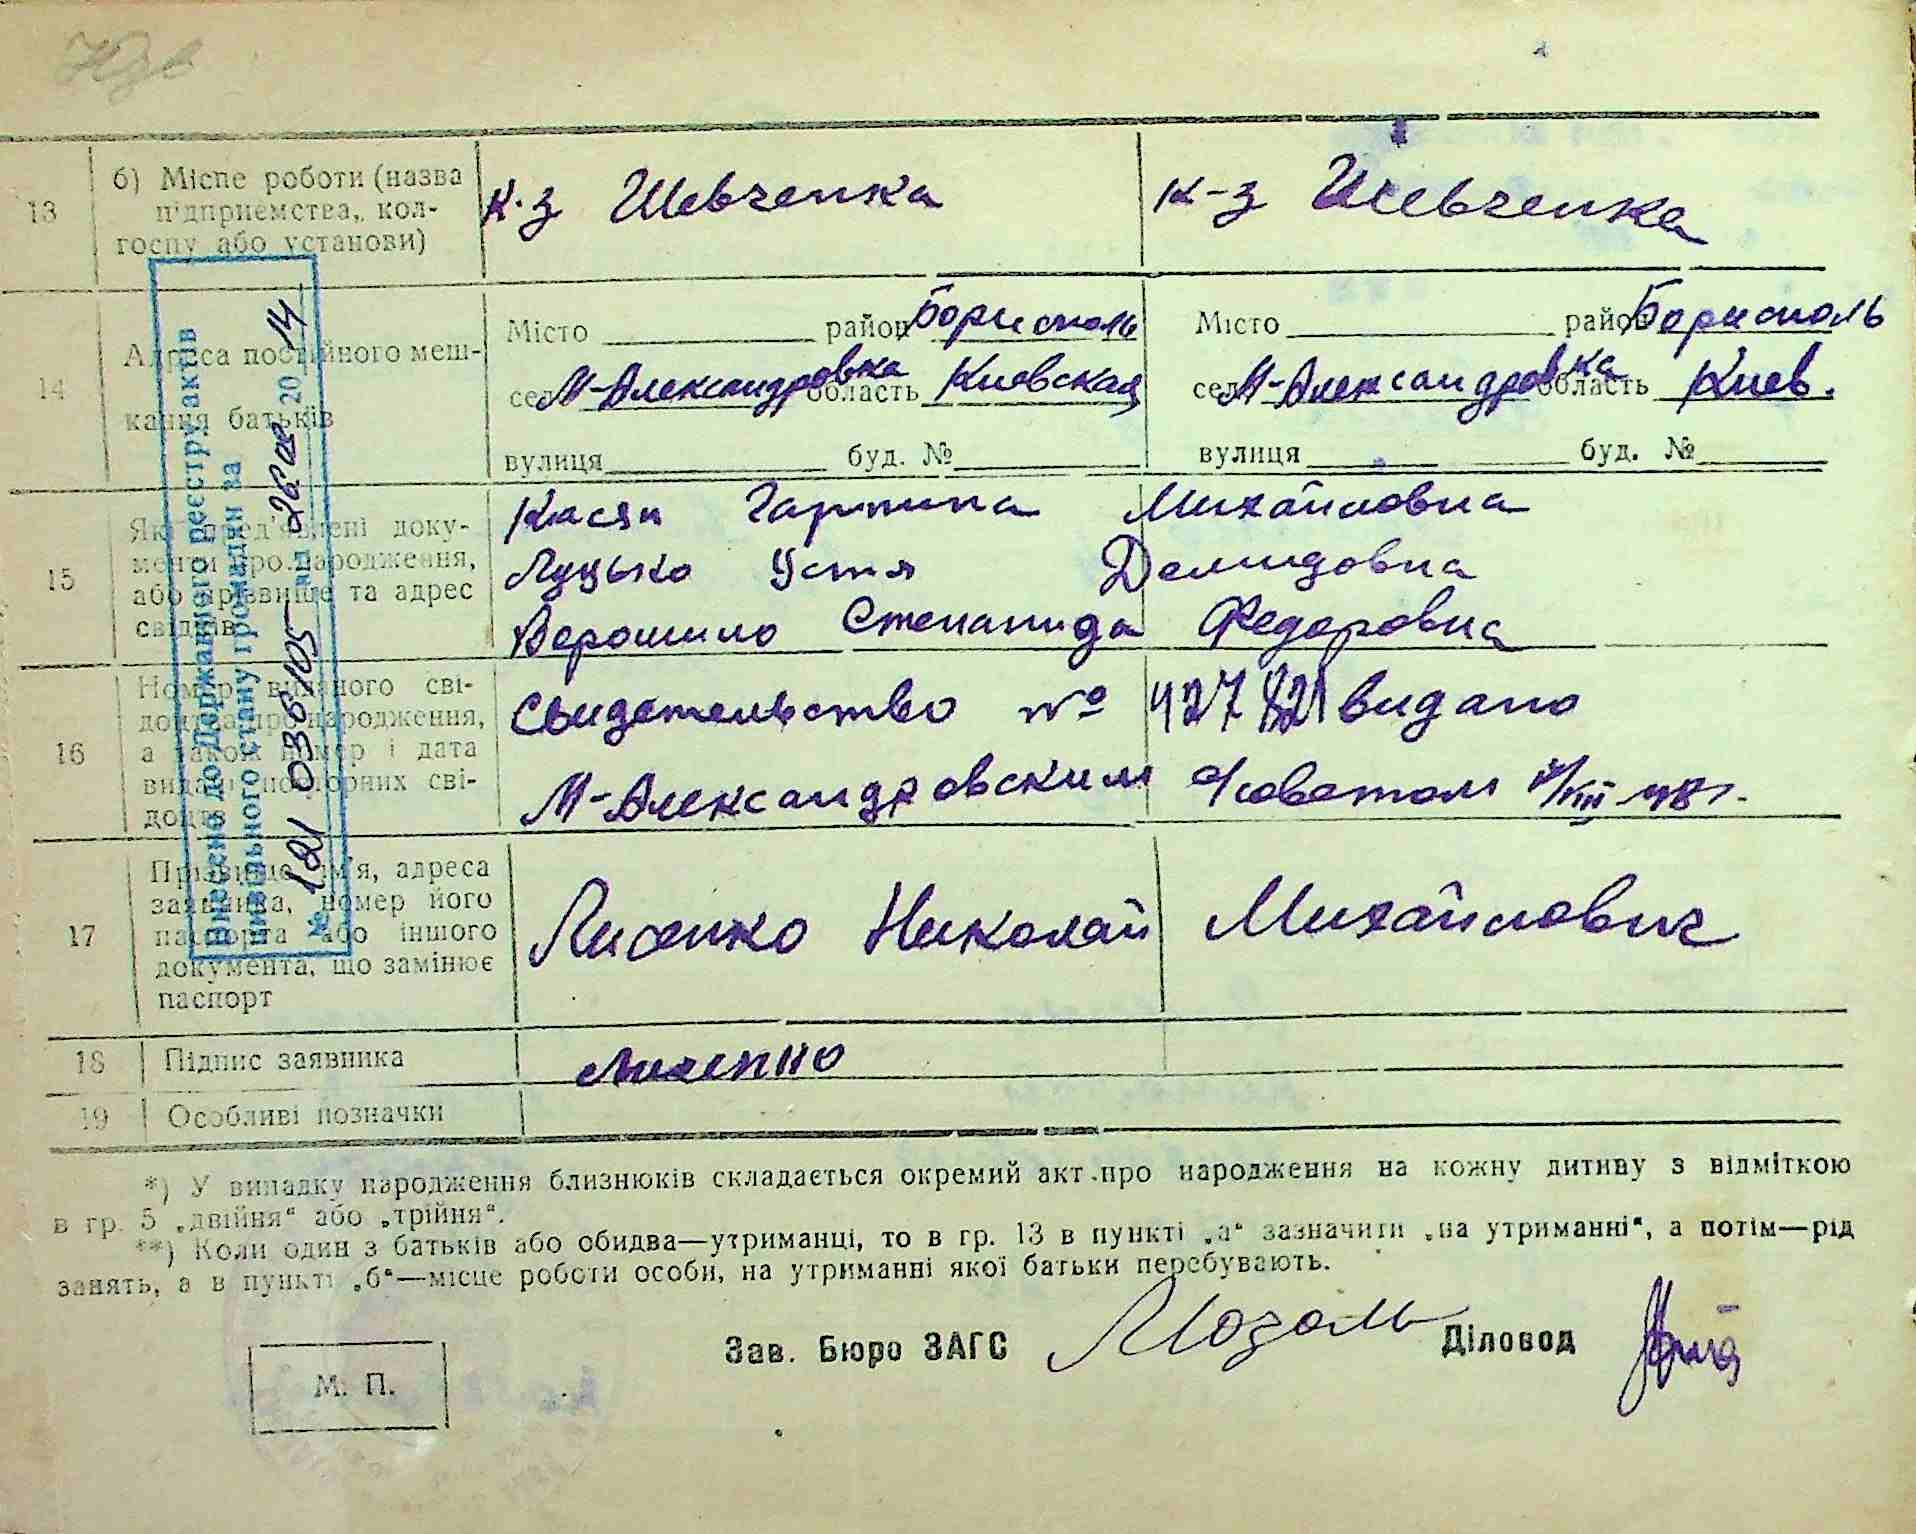 13 б) Місце роботи (назва підприємства, колгоспу або установи) к-з Шевченка к-з Шевченка
14 Адреса постійного мешкання батьків
Місто район Борисполь Місто район Борисполь
село М-Александровка область Киевская село М-Александровка область Киев.
вулиця буд. № вулиця буд. №
15 Які пред'явлені документи про народження, або прізвище та адрес свідків
Касян Гарпина Михайловна
Луцько Устя Демидовна
Ворошило Степанида Федоровна
16 Номер виданого свідоцтва про народження, а також номер і дата видачі повторних свідоцтв
Свидетельство № видано
М-Александровским с/советом
17 Прізвище, ім'я, адреса заявника, номер його паспорта або іншого документа, що замінює паспорт
Лисенко Николай Михайлович
18 Підпис заявника Лисенко
19 Особливі позначки
*) У випадку народження близнюків складається окремий акт про народження на кожну дитину з відміткою
в гр. 5 „двійня“ або „трійня“.
**) Коли один з батьків або обидва—утриманці, то в гр. 13 в пункті „а“ зазначити „на утриманні“, а потім—рід
занять, а в пункті „б“—місце роботи особи, на утриманні якої батьки перебувають.
Зав. Бюро ЗАГС Мозоль Діловод
М. П.
Внесено до Державного реєстру актів
цивільного стану громадян за
№ 121 0385105 від 20 14